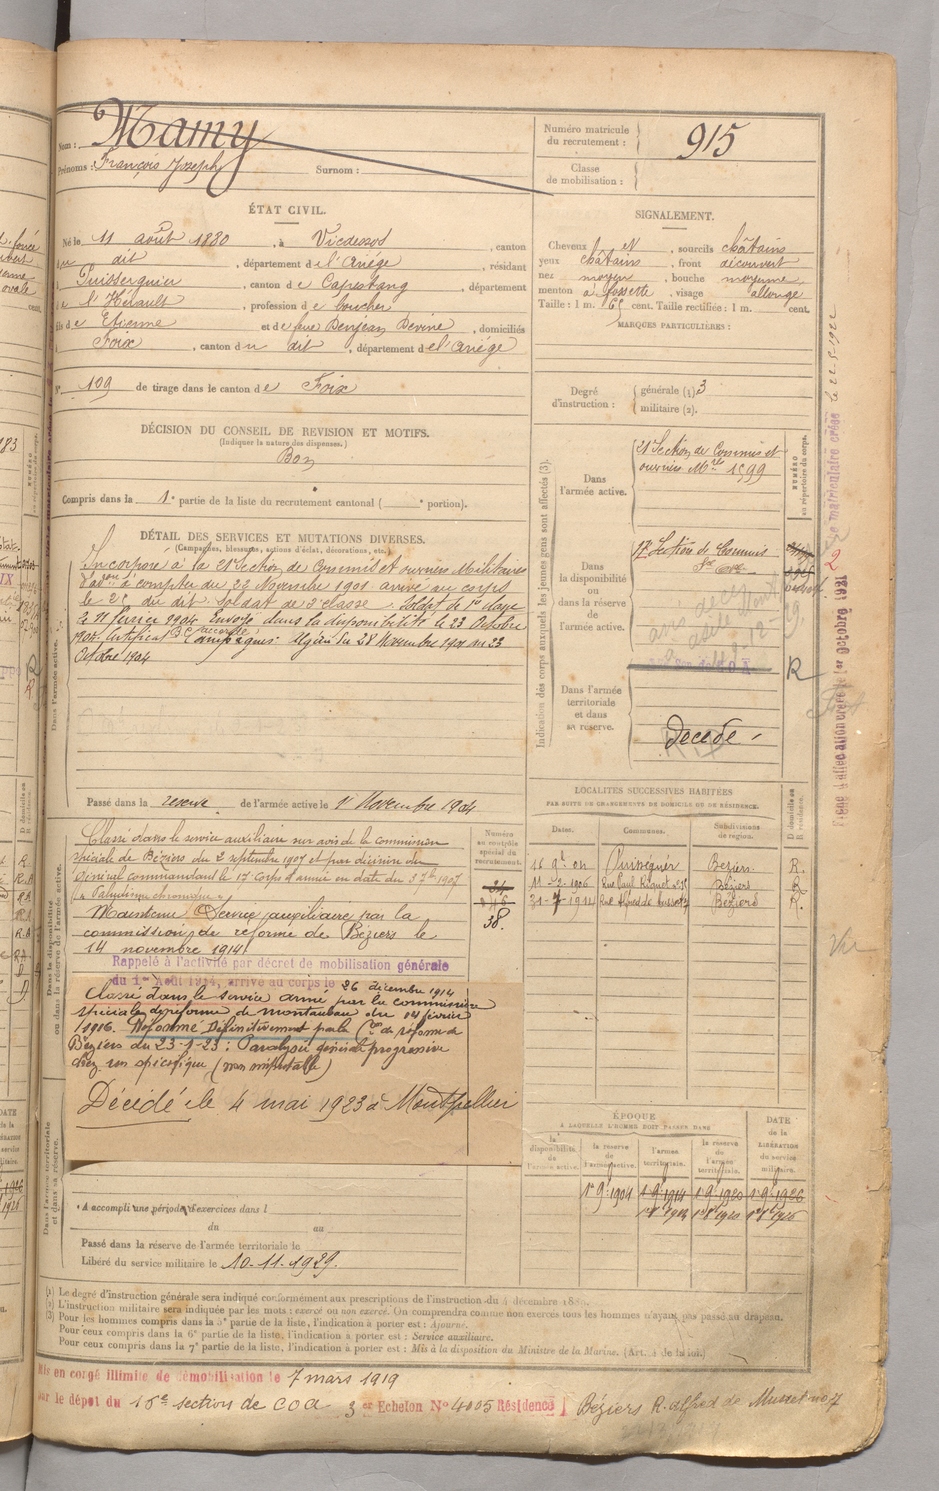 Nom : Mamy
Prénoms : François Joseph Surnom :
Numéro matricule du recrutement : 915
Classe de mobilisation :
ÉTAT CIVIL.
Né le 11 août 1880, à Vicdessos, canton
du dit, département de l'Ariège, résidant
Puisserguier, canton de Capestang, département
de l'Hérault, profession de boucher
fils de Etienne et de feue Benjean Devine, domiciliés
Foix, canton du dit, département de l'Ariège
N° 109 de tirage dans le canton de Foix
DÉCISION DU CONSEIL DE REVISION ET MOTIFS.
(Indiquer la nature des dispenses.)
Bon
Compris dans la 1e partie de la liste du recrutement cantonal ( e portion).
SIGNALEMENT.
Cheveux et, sourcils châtains
yeux châtains, front découvert
nez moyen, bouche moyenne
menton à fossette, visage allongé
Taille : 1 m. 65 cent. Taille rectifiée : 1 m. cent.
MARQUES PARTICULIÈRES :
Degré d'instruction : générale (1) 3
militaire (2).
DÉTAIL DES SERVICES ET MUTATIONS DIVERSES.
(Campagnes, blessures, actions d'éclat, décorations, etc.)
Incorporé à la 21e Section de Commis et ouvriers Militaires
à compter du 22 Novembre 1901 arrivé au corps
le 28 du dit. Soldat de 2e classe. Soldat de 1e classe
le 11 février 1904. Envoyé dans la disponibilité le 23 Octobre
1904. Certificat de B.C. accordé. Campagnes : Algérie du 28 Novembre 1901 au 23
Octobre 1904
Passé dans la réserve de l'armée active le 1 Novembre 1904
Classé dans le service auxiliaire sur avis de la commission
spéciale de Béziers du 2 septembre 1907 et par décision du
Général commandant le 17 corps d'armée en date du 3 7bre 1907
"Paludisme chronique"
Maintenu Service auxiliaire par la
commission de réforme de Béziers le
14 novembre 1914
Rappelé à l'activité par décret de mobilisation générale
du 1er Août 1914, arrivé au corps le 26 décembre 1914
Classé dans le service armé par la commission
spéciale de réforme de Montauban du 14 février
1916. Réformé Définitivement par la Con de réforme de
Béziers du 23-1-23 : Paralysie générale progressive
chez non spécifique (non imputable)
Décédé le 4 mai 1923 à Montpellier
Numéro au contrôle spécial du recrutement.
38
Indication des corps auxquels les jeunes gens sont affectés (3).
Dans l'armée active.
21 Section de Commis et
ouvriers Mle 1599
NUMÉRO au répertoire du corps.
Dans la disponibilité ou dans la réserve de l'armée active.
17e Section de Commis
Dans l'armée territoriale et dans sa réserve.
R
Décédé
LOCALITÉS SUCCESSIVES HABITÉES
PAR SUITE DE CHANGEMENTS DE DOMICILE OU DE RÉSIDENCE.
Dates. Communes. Subdivisions de région. D domicile ou R résidence.
Puisseguier Béziers R.
11-2-1906 Rue Paul Riquet Béziers R
31-7-1914 Rue Alfred de Musset 7 Béziers R.
ÉPOQUE
A LAQUELLE L'HOMME DOIT PASSER DANS
la disponibilité de l'armée active.
la réserve de l'armée active.
l'armée territoriale.
la réserve de l'armée territoriale.
DATE de la LIBÉRATION du service militaire.
1r 9b 1904 1 9b 1914 1 9b 1920 1 9b 1926
A accompli une période d'exercices dans l
du au
Passé dans la réserve de l'armée territoriale le
Libéré du service militaire le 10-11-1929.
(1) Le degré d'instruction générale sera indiqué conformément aux prescriptions de l'instruction du 4 décembre 1889.
(2) L'instruction militaire sera indiquée par les mots : exercé ou non exercé. On comprendra comme non exercés tous les hommes n'ayant pas passé au drapeau.
(3) Pour les hommes compris dans la 5e partie de la liste, l'indication à porter est : Ajourné.
Pour ceux compris dans la 6e partie de la liste, l'indication à porter est : Service auxiliaire.
Pour ceux compris dans la 7e partie de la liste, l'indication à porter est : Mis à la disposition du Ministre de la Marine.
Mis en congé illimité de démobilisation le 7 mars 1919
par le dépôt du 16e section de COA 3e Echelon N° 4005 Résidence Béziers R. Alfred de Musset no 7